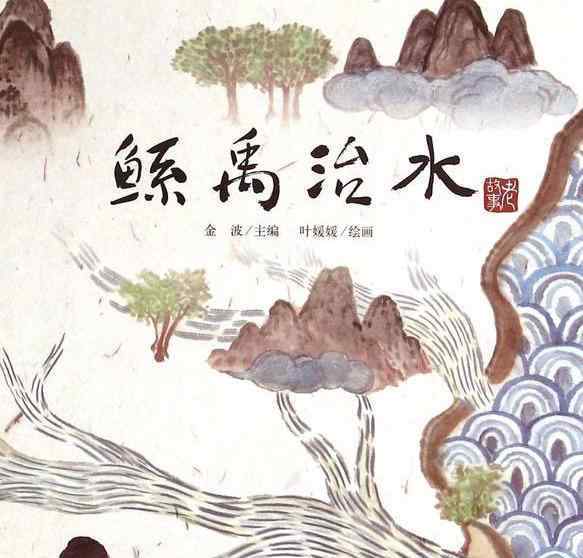 鲧禹治水
老故事
金 波/主编 叶媛媛/绘画